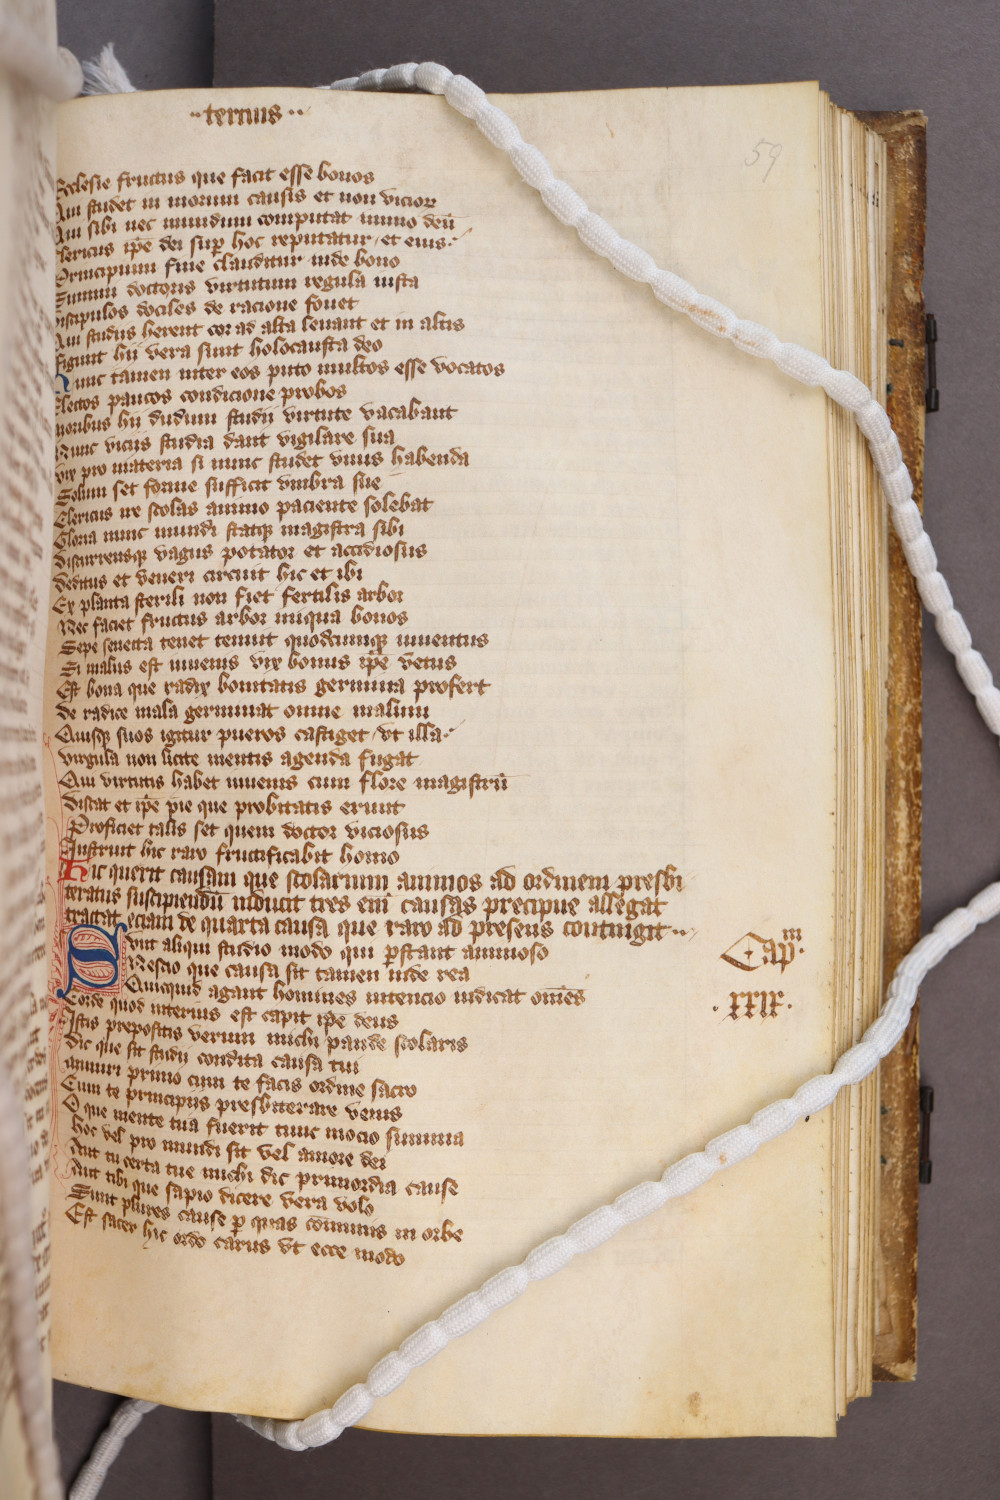 ··tercius··
59
Ecclesie fructus que facit esse bonos
Qui studet in morum causis et non vicior
Qui sibi nec mundum computat immo deū
Clericus ip̄e dei sup̱ hoc reputatur et eius
Principium fine clauditur inde bono
Summi doctoris virtutum regula iusta
Discipulos dociles de racione fouet
Qui studiis herent cor ad alta leuant et in altis
Figunt hii vera sunt holocausta deo
Hunc tamen inter eos puto multos esse vocatos
Electos paucos condicione probos
moribus hii dudum studii virtute vacabant
Nunc viciis studia dant vigilare sua
vix pro materia si nunc studet vnus habenda
Solum set forme sufficit vmbra sue
Clericus ire scolas animo paciente solebat
Gloria nunc mundi statq̱ magistra sibi
Discurrensq̱ vagus potator et accidiosus
deditus et veneri circuit hic et ibi
Ex planta sterili non fiet fertilis arbor
Nec faciet fructus arbor iniqua bonos
Sepe senecta tenet tenuit quodcumq̱ iuuentus
Si malus est iuuenis vix bonus ip̄e vetus
Est bona que radix bonitatis germina profert
de radice mala germinat omne malum
Quisq̱ suos igitur pueros castiget vt illa
virgula non licite mentis agenda fugat
Qui virtutis habet iuuenis cum flore magistrū
discat et ip̄e pie que probitatis erunt
Proficiet talis set quem doctor viciosus
Instruit hic raro fructificabit homo
Hic querit causam que scolarum animos ad ordinem presbi
teratus suscipiendū inducit tres eni causas precipue allegat
tractat eciam de quarta causa que raro ad presens contingit··
Sunt aliqui studio modo qui p̱stant animoso
Capm̄
Nescio que causa sit tamen inde rea
Quicquid agant homines intencio iudicat om̄es
·xxix·
Corde quod interius est capit ip̄e deus
Istis prepositis verum michi pande scolaris
Dic que sit studii condita causa tui
Cum te principiis presbiterare venis
O que mente tua fuerit tunc mocio summa
hoc vel pro mundi sit vel amore dei
Aut tu certa tue michi dic primordia cause
Aut tibi que sapio dicere vera volo
Sunt plures cause p̱ quas co̅munis in orbe
Est sacer hic ordo carus vt ecce modo